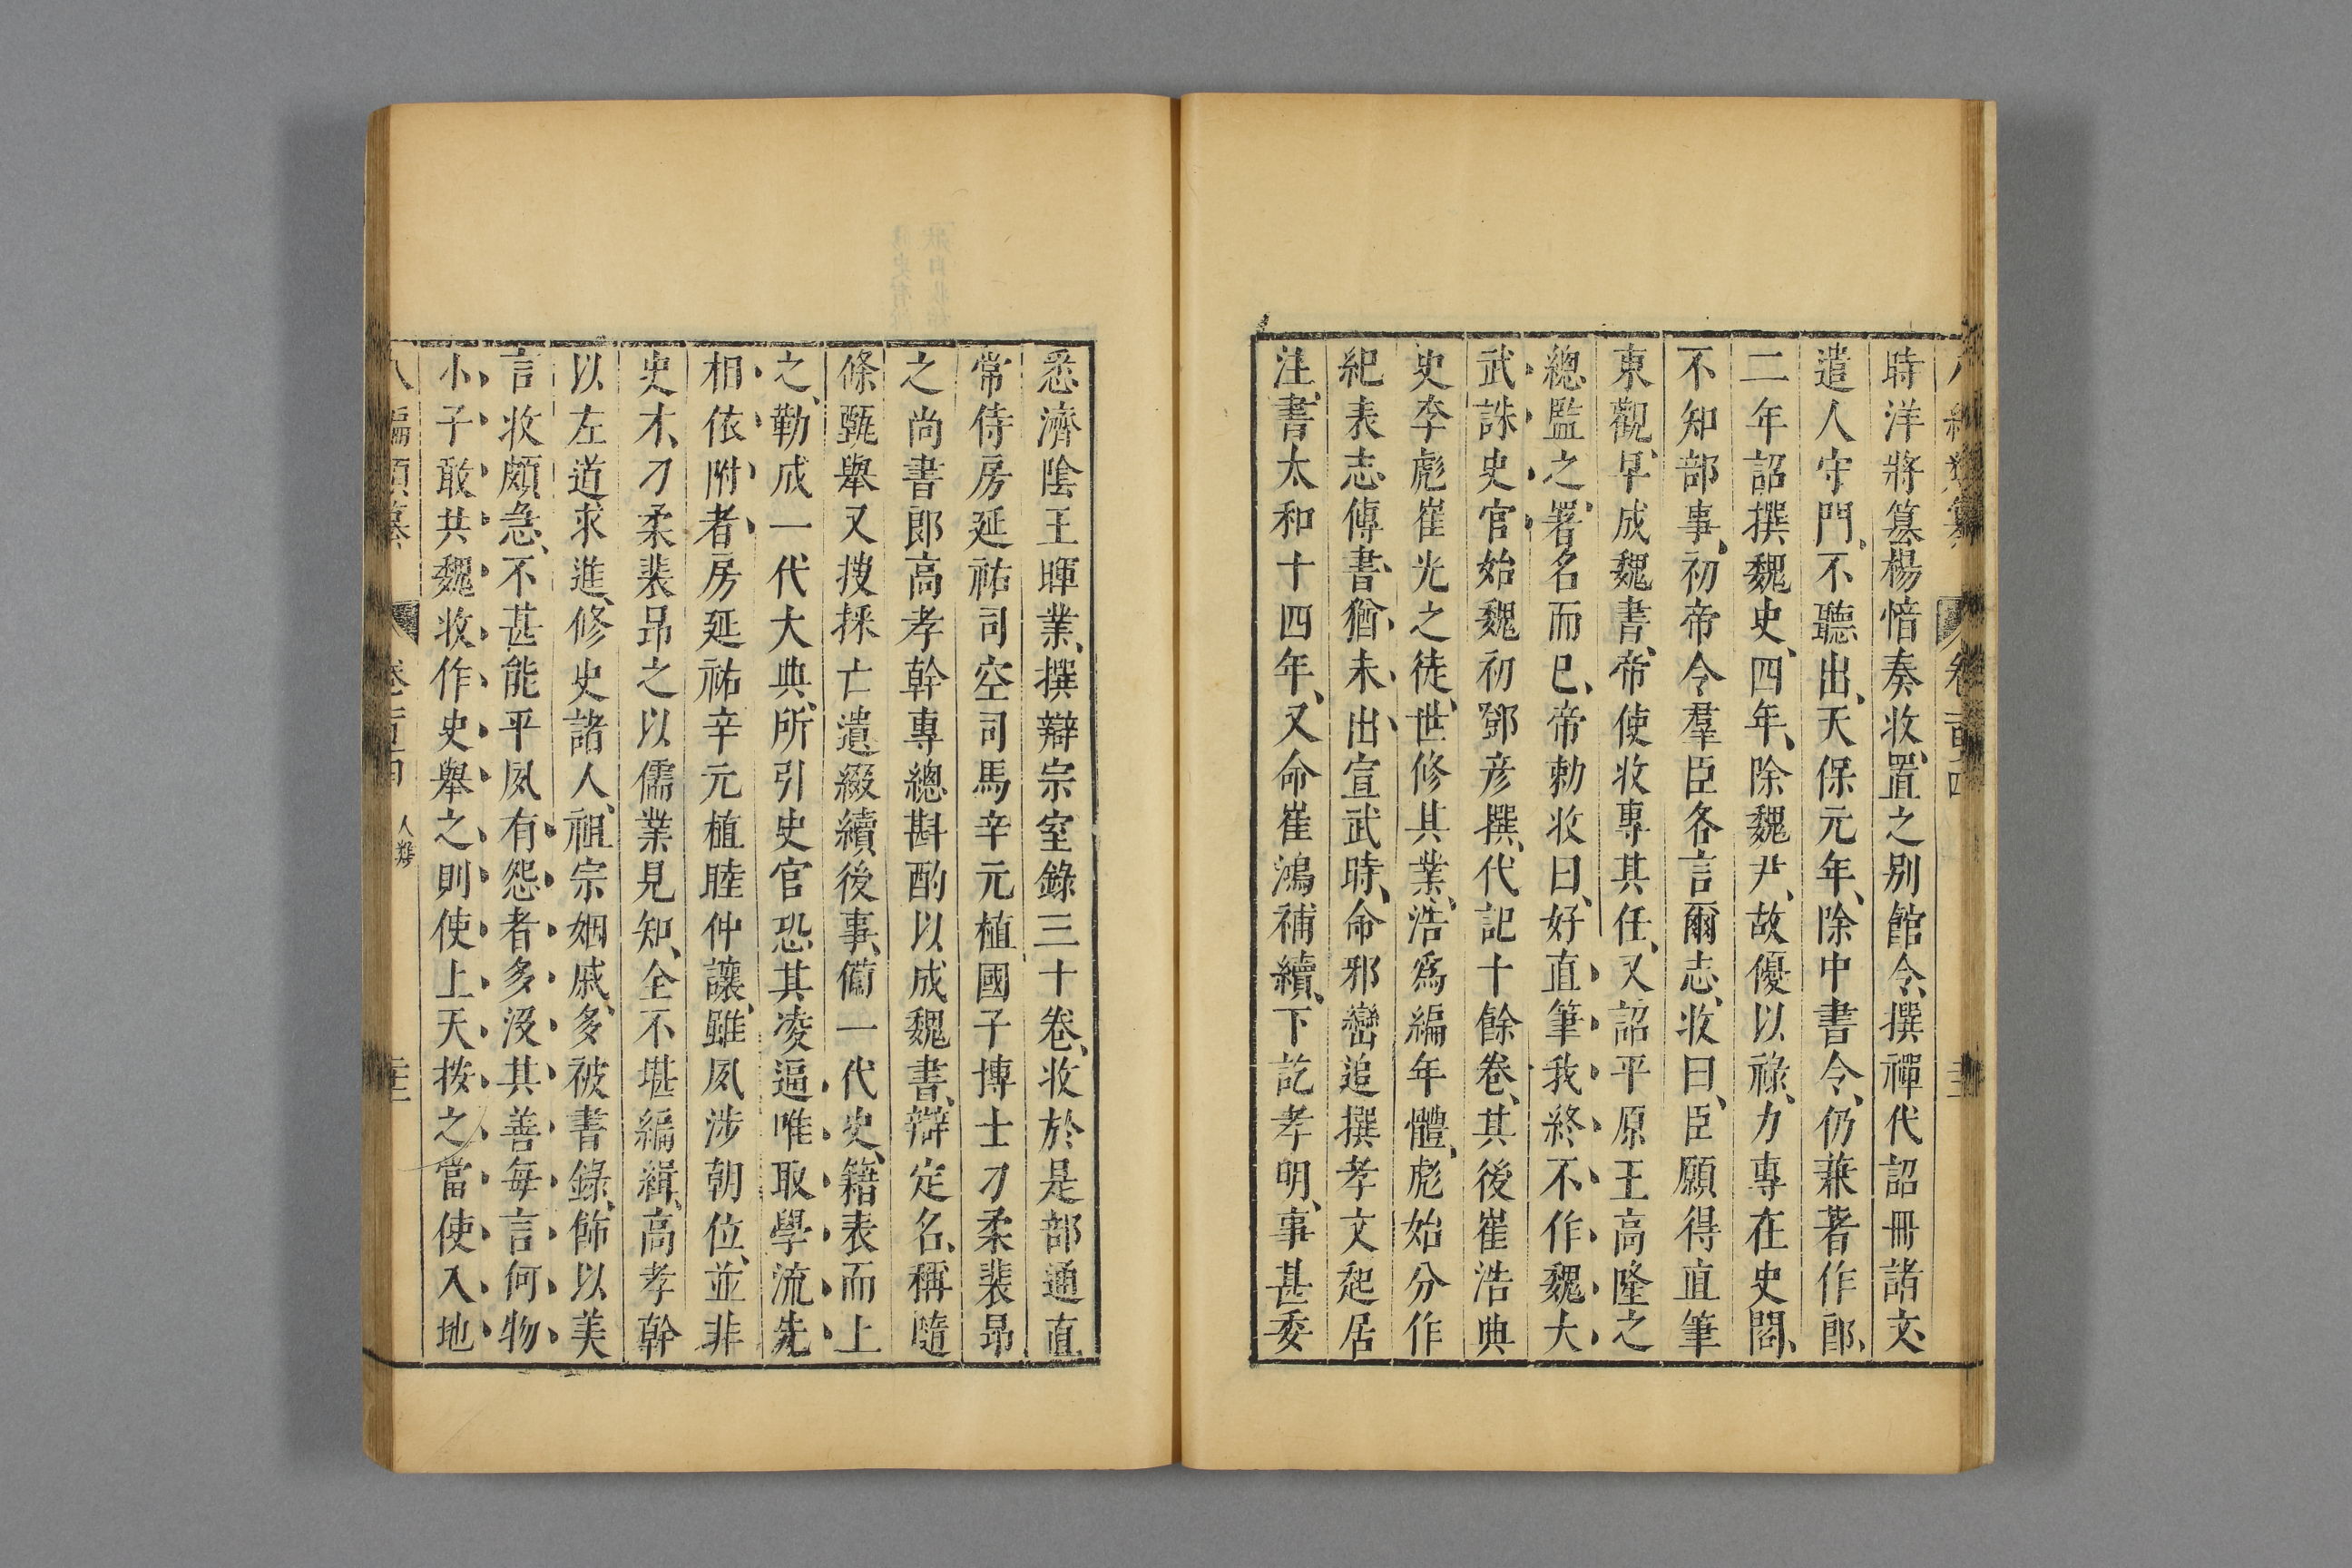 時洋將篡楊愔奏收置之别館令撰禪代詔冊諸文
遣人守門不聽出天保元年除中書令仍兼著作郎
二年詔撰魏史四年除魏尹故優以祿力專在史閣
不知部事初帝令羣臣各言爾志收曰臣願得直筆
東觀早成魏書帝使收專其任又詔平原王高隆之
總監之署名而已帝勅收曰好直筆我終不作魏大
武誅史官始魏初鄧彦撰代記十餘卷其後崔浩典
史李彪崔光之徒世修其業浩爲編年體彪始分作
紀表志傳書猶未出宣武時命邢巒追撰孝文起居
注書太和十四年又命崔鴻補續下訖孝明事甚委
悉濟陰王暉業撰辯宗室錄三十卷收於是部通直
常侍房延祐司空司馬辛元植國子博士刁柔裴昂
之尚書郎高孝幹專總斟酌以成魏書辯定名稱隨
條甄舉又搜採亡遺綴續後事備一代史籍表而上
之勒成一代大典所引史官恐其凌逼唯取學流先
相依附者房延祐辛元植眭仲讓雖夙涉朝位並非
史才刁柔裴昂之以儒業見知全不堪編緝高孝幹
以左道求進修史諸人祖宗姻戚多被書錄飾以美
言收頗急不甚能平夙有怨者多沒其善每言何物
小子敢共魏收作史舉之則使上天按之當使入地
八編類纂 卷百四 人類